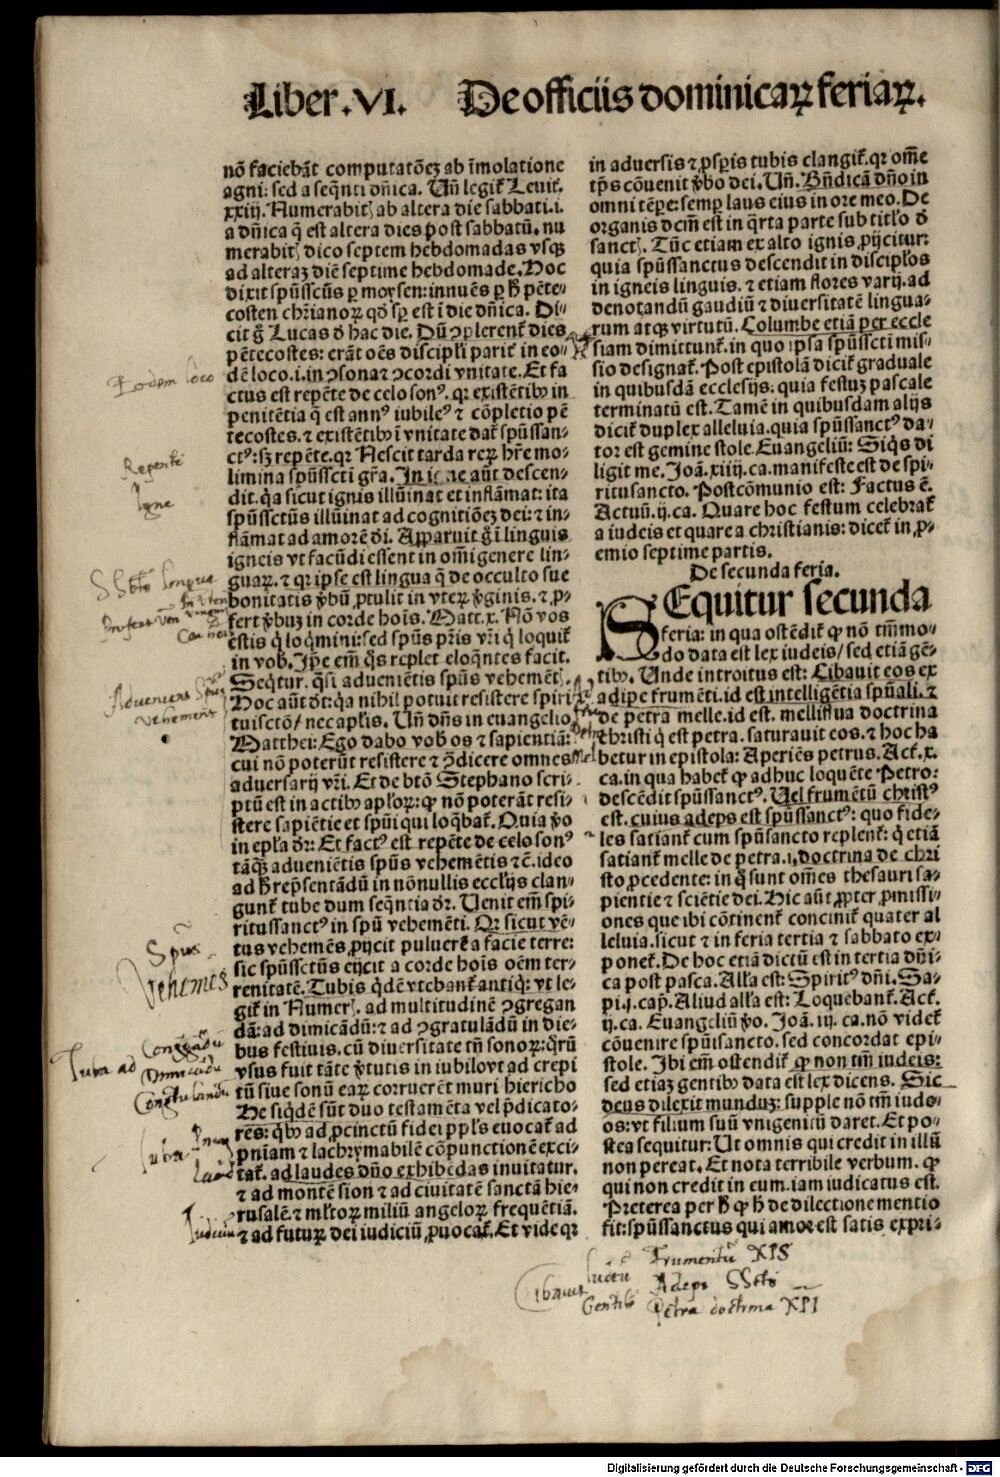 Liber .VI. De officiis dominicaꝝ feriaꝝ.
nō faciebāt computatōeʒ ab īmolatione
agni: sed a seq̄nti dn̄ica. Un̄ legit̄ Levit̄.
xxiij. Numerabit̄ ab altera die sabbati .i.
a dn̄ica q̄ est altera dies post sabbatū. nu
merabit̄ dico septem hebdomadas vsqʒ
ad alteraʒ diē septime hebdomade. Hoc
dixit spūsscūs ꝑ moysen: innuēs ꝑ ħ pēte-
costen chr̄ianoꝝ qd̄ sꝑ est ī die dn̄ica. Di-
cit g̊ Lucas d̄ hac die. Dū ↄplerent̄ dies
pētecostes: erāt oēs discipl̄i parit̄ in eo-
dē loco .i. in ↄsona ⁊ ↄcordi vnitate. Et fa
ctus est repēte de celo sonꝰ. qr existētibꝰ in
penitētia q̄ est annꝰ iubileꝰ ⁊ cōpletio pē
tecostes. ⁊ existētibꝰ ī vnitate dat̄ spūssan-
ctꝰ: sʒ repēte. qr Nescit tarda reꝝ hr̄e mo-
limina spūssctī gr̄a. In igne aūt descen-
dit. q̄a sicut ignis illūinat et inflāmat: ita
spūssctūs illūinat ad cognitiōeʒ dei: ⁊ in-
flāmat ad amorē d̄i. Apparuit g̊ ī linguis
igneis vt facūdi essent in om̄i genere lin-
guaꝝ. ⁊ qr ipse est lingua q̄ de occulto sue
bonitatis v̄bū ꝓtulit in vteꝝ v̄ginis. ⁊ ꝓ-
fert v̄buʒ in corde hoīs. Matt. x. Nō vos
estis q̄ loq̄mini: sed spūs pr̄is vr̄i q̄ loquit̄
in vob. Ip̄e em̄ q̄s replet eloq̄ntes facit.
Seq̄tur. q̄si adveniētis spūs vehemēt̄.
Hoc aūt d̄r: q̄a nihil potuit resistere spiri
tuiscto/ nec apl̄is. Un̄ dn̄s in euangelio
Matthei: Ego dabo vob os ⁊ sapientiā:
cui nō poterūt resistere ⁊ ↄdicere omnes
adversarij vr̄i. Et de btō Stephano scri-
ptū est in actibꝰ aploꝝ: qꝫ nō poterāt resi-
stere sapiētie et spūi qui loq̄bat̄. Quia v̄o
in epl̄a d̄r: Et factꝰ est repēte de celo sonꝰ
tāqʒ adveniētis spūs vehemētis ⁊c̄. ideo
ad ħ rep̄sentādū in nōnullis eccl̄ijs clan-
gunt̄ tube dum seq̄ntia d̄r. Uenit em̄ spi-
ritussanctꝰ in spū vehemēti. Qr sicut vē-
tus vehemēs ꝓijcit pulverē a facie terre:
sic spūssctūs eijcit a corde hoīs oēm ter-
renitatē. Tubis q̄dē vtebant̄ antiq̄: vt le-
git̄ in Numeri. ad multitudinē ↄgregan
dā: ad dimicādū: ⁊ ad ↄgratulādū in die-
bus festivis. cū diversitate tn̄ sonoꝝ: q̄rū
vsus fuit tāte v̄tutis in iubilo vt ad crepi
tū sive sonū eaꝝ corruerēt muri hiericho
He siq̄dē sūt duo testamēta vel p̄dicato-
res: q̄bꝰ ad ꝓcinctū fidei ppl̄s evocat̄ ad
pn̄iam ⁊ lachrymabilē cōpunctionē exci-
tat̄. ad laudes dn̄o exhibēdas invitatur.
⁊ ad montē sion ⁊ ad civitatē sanctā hie-
rusalē. ⁊ ml̄toꝝ miliū angeloꝝ frequētiā.
⁊ ad futuꝝ dei iudiciū ꝓvocat̄. Et vide qr
in adversis ⁊ ꝓsꝑis tubis clangit̄. qr om̄e
tp̄s cōvenit v̄bo dei. Un̄. Bn̄dicā dn̄o in
omni tēꝑe: semꝑ laus eius in ore meo. De
organis dcm̄ est in q̄rta parte sub titl̄o d̄
sanct̄. Tūc etiam ex alto ignis ꝓijcitur:
quia spūssanctus descendit in discipl̄os
in igneis linguis. ⁊ etiam flores varij. ad
denotandū gaudiū ⁊ diversitatē lingua-
rum atqʒ virtutū. Columbe etiā per eccle
siam dimittunt̄. in quo ipsa spūsscti mis-
sio designat̄. Post epistolā dicit̄ graduale
in quibusdā ecclesijs: quia festuʒ pascale
terminatū est. Tamē in quibusdam alijs
dicit̄ duplex alleluia. quia spūssanctꝰ da-
tor est gemine stole. Euangeliū: Siq̄s di
ligit me. Joā. xiiij. ca. manifeste est de spi-
ritusancto. Postcōmunio est: Factus ē.
Actuū. ij. ca. Quare hoc festum celebrat̄
a iudeis et quare a christianis: dicet̄ in ꝓ-
emio septime partis.
De secunda feria.
SEquitur secunda
feria: in qua ostēdit̄ qꝫ nō tm̄mo-
do data est lex iudeis/ sed etiā gē-
tibꝰ. Unde introitus est: Cibavit eos ex
adipe frumēti. id est intelligētia spūali. ⁊
de petra melle. id est. melliflua doctrina
christi q̄ est petra. saturavit eos. ⁊ hoc ha
betur in epistola: Aperiēs petrus. Act̄. x.
ca. in qua habet̄ qꝫ adhuc loquēte Petro:
descēdit spūssanctꝰ. Uel frumētū christꝰ
est. cuius adeps est spūssanctꝰ: quo fide-
les satiant̄ cum spūsancto replent̄: q̄ etiā
satiant̄ melle de petra .i. doctrina de chri
sto ꝓcedente: in q̄ sunt om̄es thesauri sa-
pientie ⁊ sciētie dei. Hic aūt ꝓpter ꝓmissi-
ones que ibi cōtinent̄ concinit̄ quater al
leluia. sicut ⁊ in feria tertia ⁊ sabbato ex-
ponet̄. De hoc etiā dictū est in tertia dn̄i-
ca post pasca. All̄a est: Spiritꝰ dn̄i. Sa-
pi. j. cap̄. Aliud all̄a est: Loquebant̄. Act̄.
ij. ca. Euangeliū v̄o. Joā. iij. ca. nō videt̄
cōvenire spūisancto. sed concordat epi-
stole. Ibi em̄ ostendit̄ qꝫ non tm̄ iudeis:
sed etiaʒ gentibꝰ data est lex dicens. Sic
deus dilexit munduʒ: supple nō tm̄ iude-
os: vt filium suū vnigenitū daret. Et po-
stea sequitur: Ut omnis qui credit in illū
non pereat. Et nota terribile verbum. qꝫ
qui non credit in eum. iam iudicatus est.
Preterea per ħ qꝫ ħ de dilectione mentio
fit: spūssanctus qui amor est satis expri-
Eodem loco
Repente
Igne
Adveniens Spūs
vehemens
Spūs
Vehemēs
Tuba ad Congregādū
Dimicādū
Congratulandū
Iudiciū
Cibavit Iudeū
Gentiles
Frumentū XPS
Adeps SSctūs
Petra doctrina XPI
Digitalisierung gefördert durch die Deutsche Forschungsgemeinschaft - DFG